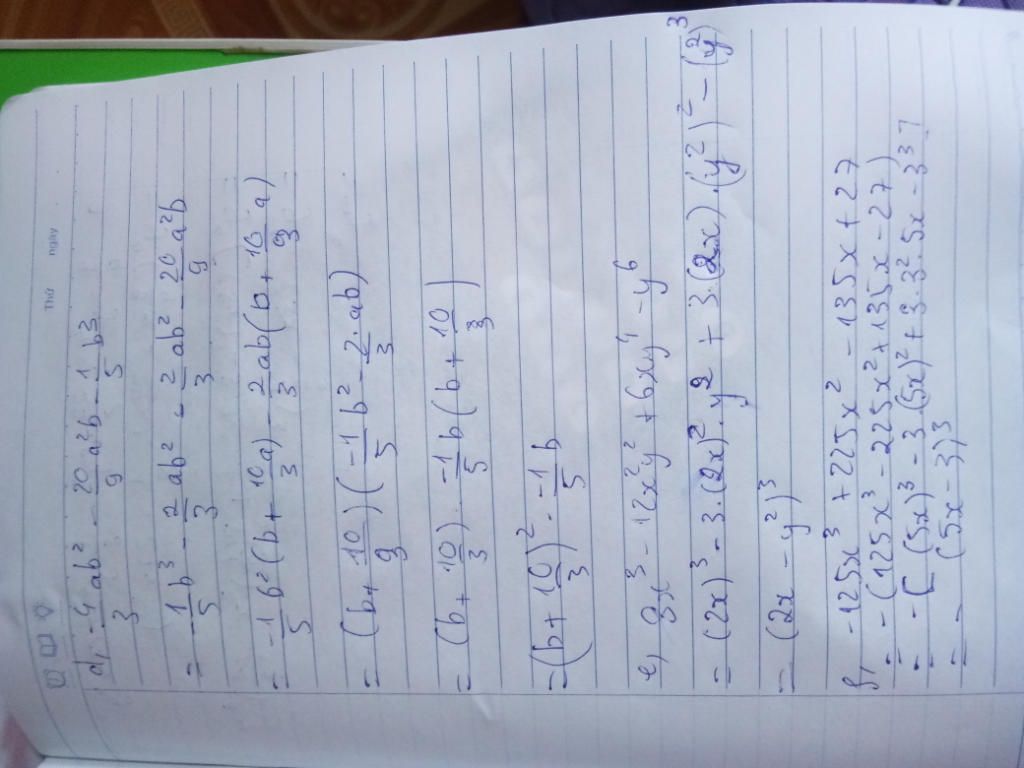 Thứ ngày
d, -4/3 ab² - 20/9 a²b - 1/5 b³
= -1/5 b³ - 2/3 ab² - 2/3 ab² - 20/9 a²b
= -1/5 b² (b + 10/3 a) - 2/3 ab (b + 10/3 a)
= (b + 10/9) (-1/5 b² - 2/3 . ab)
= (b + 10/3) . -1/5 b (b + 10/3)
= (b + 10/3)² . -1/5 b
e, 8x³ - 12x²y² + 6xy⁴ - y⁶
= (2x)³ - 3.(2x)².y² + 3.(2x).(y²)² - (y²)³
= (2x - y²)³
f, -125x³ + 225x² - 135x + 27
= -(125x³ - 225x² + 135x - 27)
= -[(5x)³ - 3.(5x)² + 3.3².5x - 3³]
= - (5x - 3)³